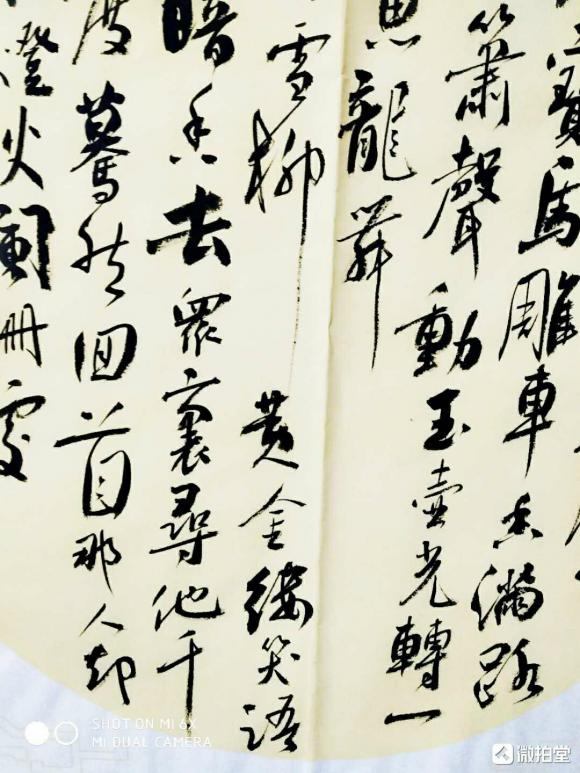 寶馬雕車香滿路
簫聲動玉壺光轉一
魚龍舞
雪柳黃金縷笑語
暗香去眾裏尋他千
度驀然回首那人却
燈火闌珊處
SHOT ON MI 6X
MI DUAL CAMERA
微拍堂